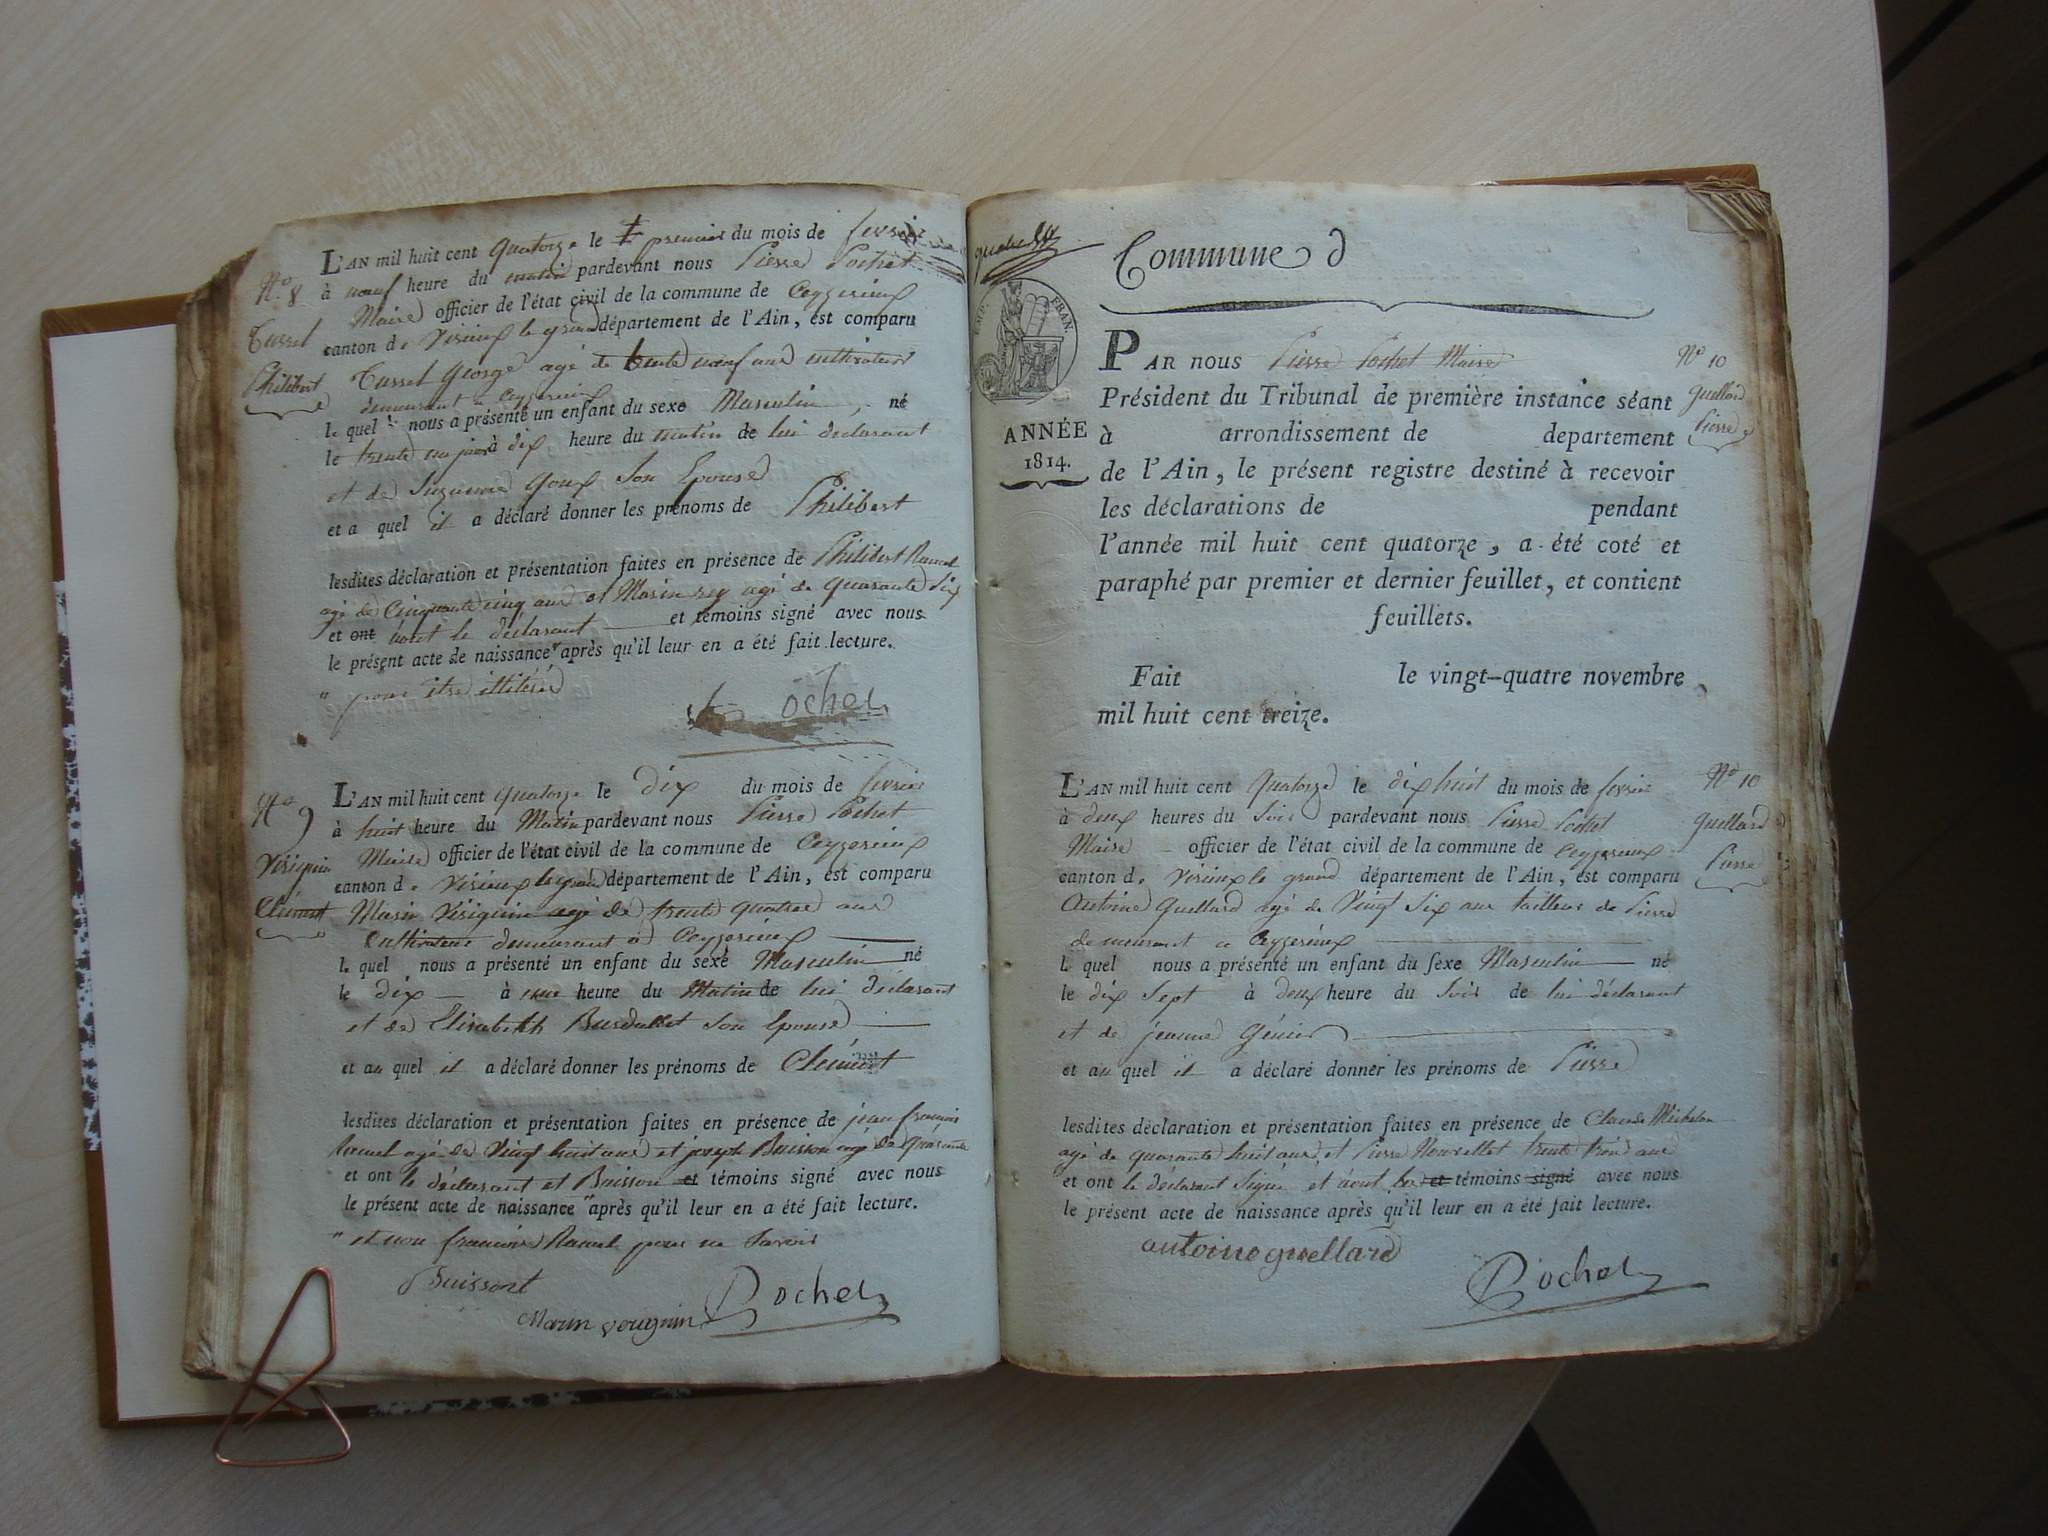 L'AN mil huit cent quatorze le premier du mois de fevrier
N.º 8
à neuf heure du matin pardevant nous Pierre Pochet
Maire officier de l'état civil de la commune de Ceyzerieux
canton de Virieux le grand département de l'Ain, est comparu
Philibert
George agé de trente neuf ans cultivateur
demeurant a Ceyzerieux
le quel nous a présenté un enfant du sexe Masculin né
le trente un janv à dix heure du matin de lui déclarant
et de Suzanne Goux son Epouse
et a quel il a déclaré donner les prénoms de Philibert
lesdites déclaration et présentation faites en présence de Philibert
agé de Cinquante cinq ans et Marin rey agé de quarante six
et ont le déclarant et témoins signé avec nous
le présent acte de naissance " après qu'il leur en a été fait lecture.
" pour être illiteré
Pochet
N.º 9
L'AN mil huit cent quatorze le dix du mois de fevrier
à huit heure du Matin pardevant nous Pierre Pochet
Maire officier de l'état civil de la commune de Ceyzerieux
Vériguin
canton de Virieux le grand département de l'Ain, est comparu
Clément
Marin Vériguin agé de trente quatre ans
Cultivateur demeurant à Ceyzerieux
le quel nous a présenté un enfant du sexe Masculin né
le dix à une heure du Matin de lui déclarant
et de Elisabeth Burdallet son Epouse
et au quel il a déclaré donner les prénoms de Clément
lesdites déclaration et présentation faites en présence de jean francois
agé de Vingt huit ans et joseph Buisson agé de quarante
et ont le déclarant et Buisson et témoins signé avec nous
le présent acte de naissance " après qu'il leur en a été fait lecture.
" et non francois pour ne Savoir
Buissont
Marin veriguin Pochet
Commune d
EMP. FRAN.
ANNÉE
1814.
PAR nous Pierre Pochet Maire
Nº 10
Président du Tribunal de première instance séant
Guellard
à arrondissement de departement
Pierre
de l'Ain, le présent registre destiné à recevoir
les déclarations de pendant
l'année mil huit cent quatorze, a été coté et
paraphé par premier et dernier feuillet, et contient
feuillets.
Fait le vingt-quatre novembre
mil huit cent treize.
L'AN mil huit cent quatorze le dix huit du mois de fevrier
Nº 10
à deux heures du soir pardevant nous Pierre Pochet
Guellard
Maire officier de l'état civil de la commune de Ceyzerieux
Pierre
canton de Virieux le grand département de l'Ain, est comparu
Antoine Guellard agé de Vingt Six ans tailleur de Pierre
demeurant a Ceyzerieux
le quel nous a présenté un enfant du sexe Masculin né
le dix Sept à deux heure du Soir de lui déclarant
et de jeanne Génier
et au quel il a déclaré donner les prénoms de Pierre
lesdites déclaration et présentation faites en présence de Claude Michelon
agé de quarante huit ans et Pierre trente trois ans
et ont le déclarant Signé et témoins signé avec nous
le présent acte de naissance après qu'il leur en a été fait lecture.
antoine guellard
Pochet